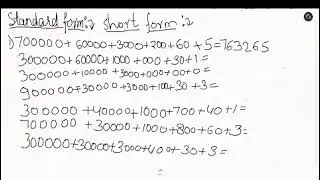 Standard form:2 short form:2
1) 700000+60000+3000+200+60+5=763265
300000+60000+1000+000+30+1=
300000+10000+3000+000+00+0=
900000+30000+3000+100+30+3=
300000+40000+1000+700+40+1=
700000+30000+1000+800+60+3=
300000+30000+3000+400+30+3=